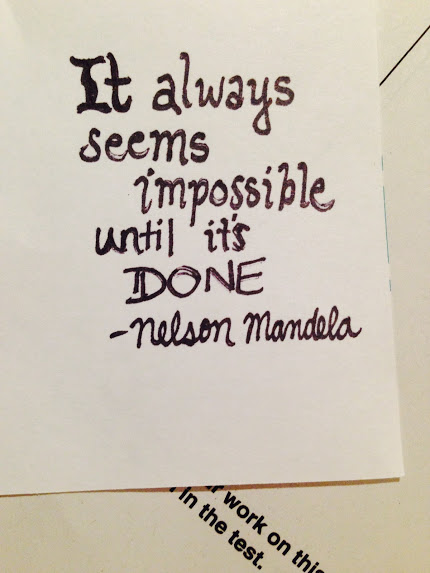 It always
seems
impossible
until it's
DONE
-nelson Mandela
work on this
in the test.